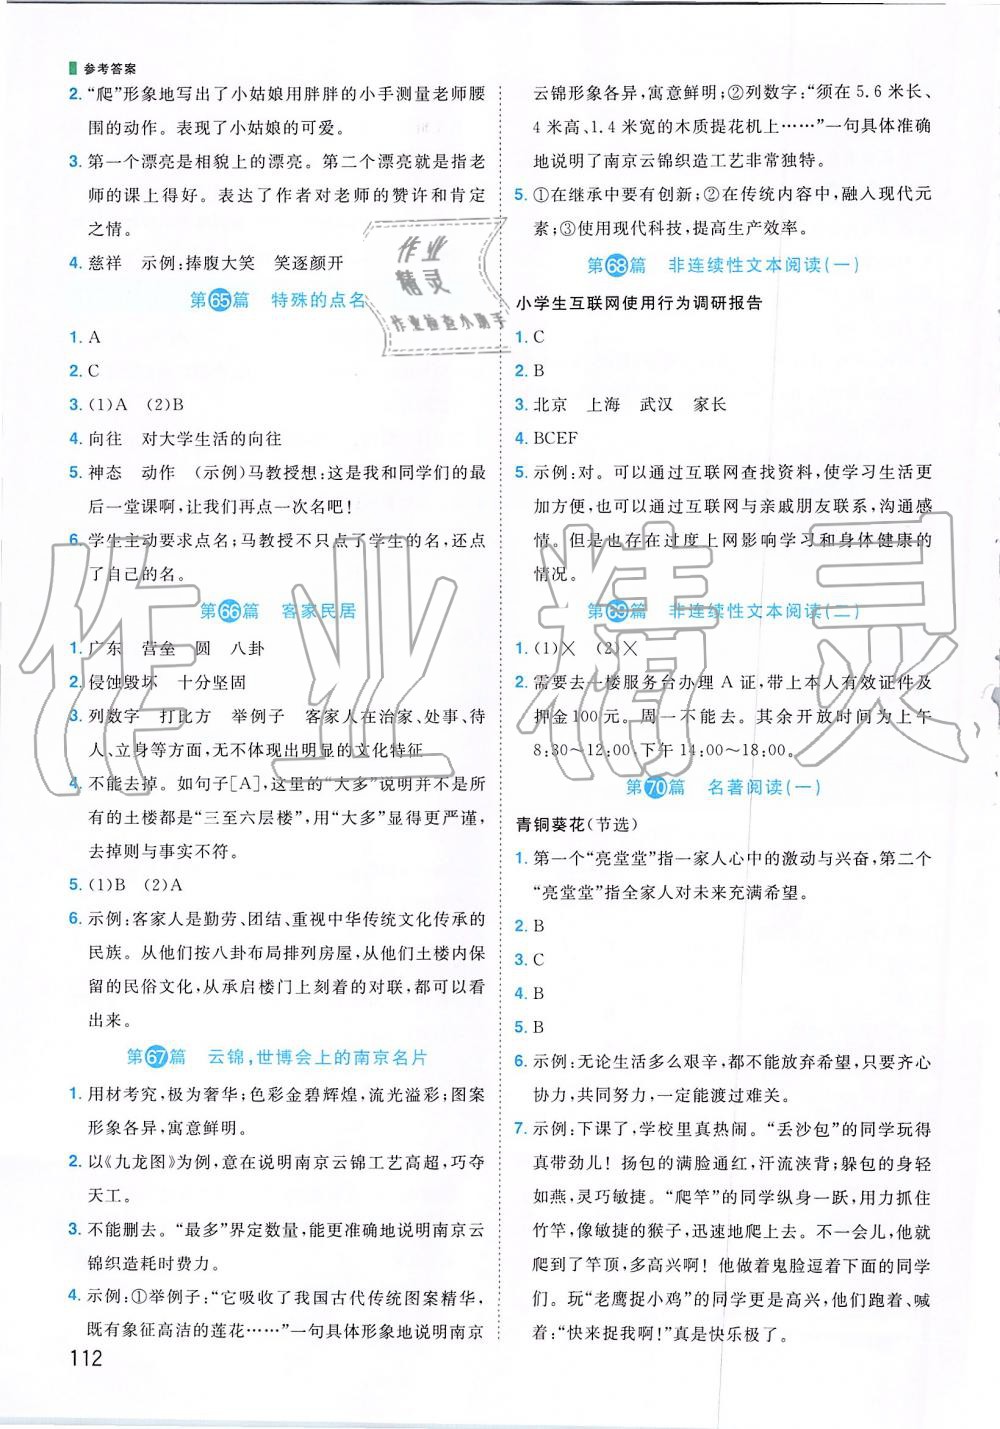 参考答案
2. “爬”形象地写出了小姑娘用胖胖的小手测量老师腰
围的动作。表现了小姑娘的可爱。
3. 第一个漂亮是相貌上的漂亮。第二个漂亮就是指老
师的课上得好。表达了作者对老师的赞许和肯定
之情。
4. 慈祥 示例:捧腹大笑 笑逐颜开
第65篇 特殊的点名
1. A
2. C
3. (1)A (2)B
4. 向往 对大学生活的向往
5. 神态 动作 (示例)马教授想:这是我和同学们的最
后一堂课啊,让我们再点一次名吧!
6. 学生主动要求点名;马教授不只点了学生的名,还点
了自己的名。
第66篇 客家民居
1. 广东 营垒 圆 八卦
2. 侵蚀毁坏 十分坚固
3. 列数字 打比方 举例子 客家人在治家、处事、待
人、立身等方面,无不体现出明显的文化特征
4. 不能去掉。如句子[A],这里的“大多”说明并不是所
有的土楼都是“三至六层楼”,用“大多”显得更严谨,
去掉则与事实不符。
5. (1)B (2)A
6. 示例:客家人是勤劳、团结、重视中华传统文化传承的
民族。从他们按八卦布局排列房屋,从他们土楼内保
留的民俗文化,从承启楼门上刻着的对联,都可以看
出来。
第67篇 云锦,世博会上的南京名片
1. 用材考究,极为奢华;色彩金碧辉煌,流光溢彩;图案
形象各异,寓意鲜明。
2. 以《九龙图》为例,意在说明南京云锦工艺高超,巧夺
天工。
3. 不能删去。“最多”界定数量,能更准确地说明南京云
锦织造耗时费力。
4. 示例:①举例子:“它吸收了我国古代传统图案精华,
既有象征高洁的莲花……”一句具体形象地说明南京
112
云锦形象各异,寓意鲜明;②列数字:“须在5.6米长、
4米高、1.4米宽的木质提花机上……”一句具体准确
地说明了南京云锦织造工艺非常独特。
5. ①在继承中要有创新;②在传统内容中,融入现代元
素;③使用现代科技,提高生产效率。
第68篇 非连续性文本阅读(一)
小学生互联网使用行为调研报告
1. C
2. B
3. 北京 上海 武汉 家长
4. BCEF
5. 示例:对。可以通过互联网查找资料,使学习生活更
加方便,也可以通过互联网与亲戚朋友联系,沟通感
情。但是也存在过度上网影响学习和身体健康的
情况。
第69篇 非连续性文本阅读(二)
1. (1)× (2)×
2. 需要去一楼服务台办理A证,带上本人有效证件及
押金100元。周一不能去。其余开放时间为上午
8:30~12:00 下午14:00~18:00。
第70篇 名著阅读(一)
青铜葵花(节选)
1. 第一个“亮堂堂”指一家人心中的激动与兴奋,第二个
“亮堂堂”指全家人对未来充满希望。
2. B
3. C
4. B
5. B
6. 示例:无论生活多么艰辛,都不能放弃希望,只要齐心
协力,共同努力,一定能渡过难关。
7. 示例:下课了,学校里真热闹。“丢沙包”的同学玩得
真带劲儿!扬包的满脸通红,汗流浃背;躲包的身轻
如燕,灵巧敏捷。“爬竿”的同学纵身一跃,用力抓住
竹竿,像敏捷的猴子,迅速地爬上去。不一会儿,他就
爬到了竿顶,多高兴啊!他做着鬼脸逗着下面的同学
们。玩“老鹰捉小鸡”的同学更是高兴,他们跑着、喊
着:“快来捉我啊!”真是快乐极了。
作业
精灵
作业检查小助手
作业精灵